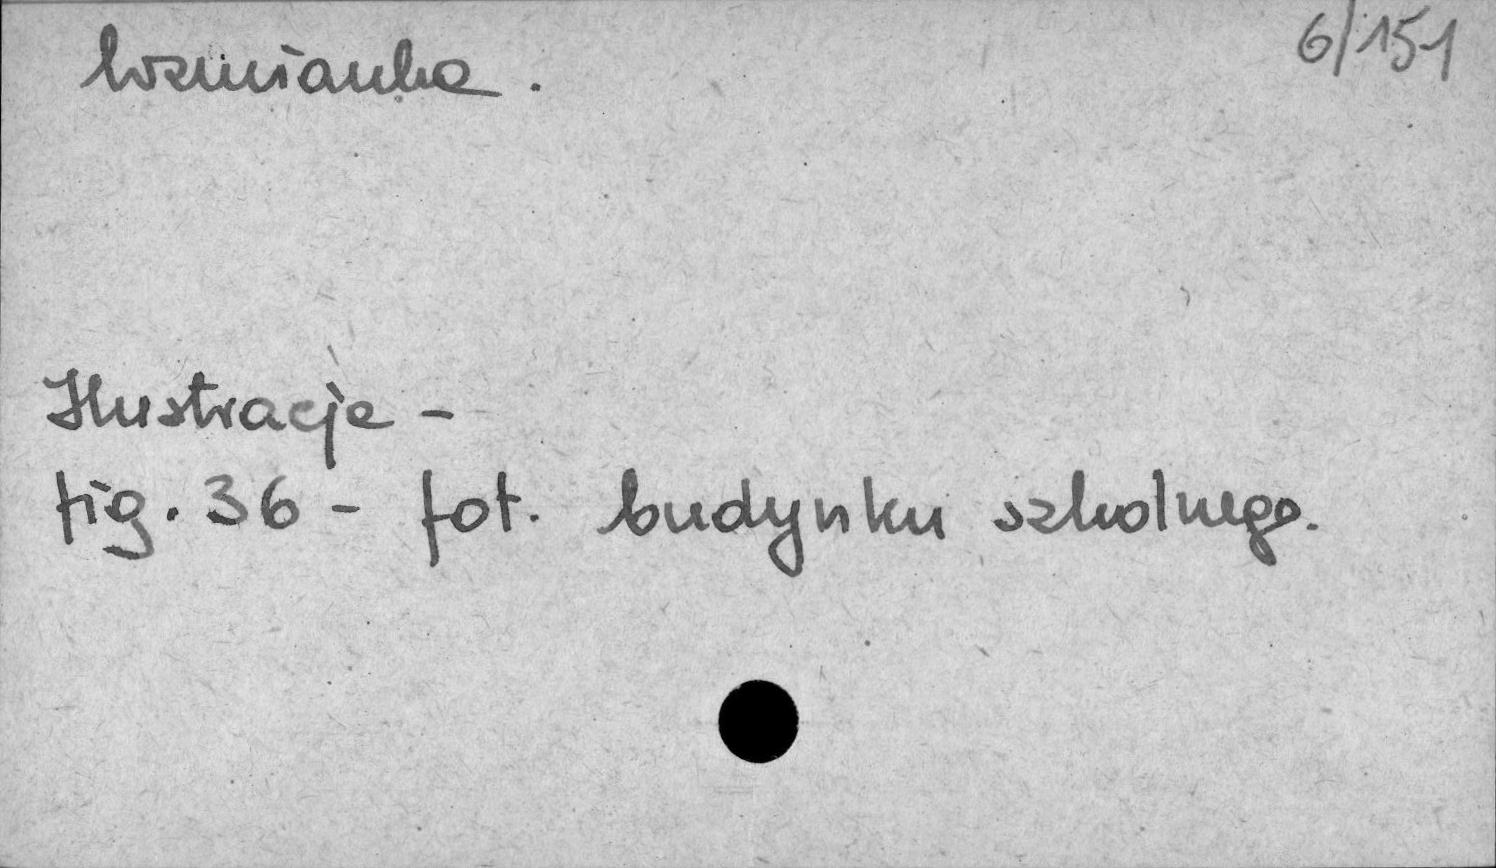 Wzmianka .
6/151
Ilustracje -
fig. 36 - fot. budynku szkolnego.